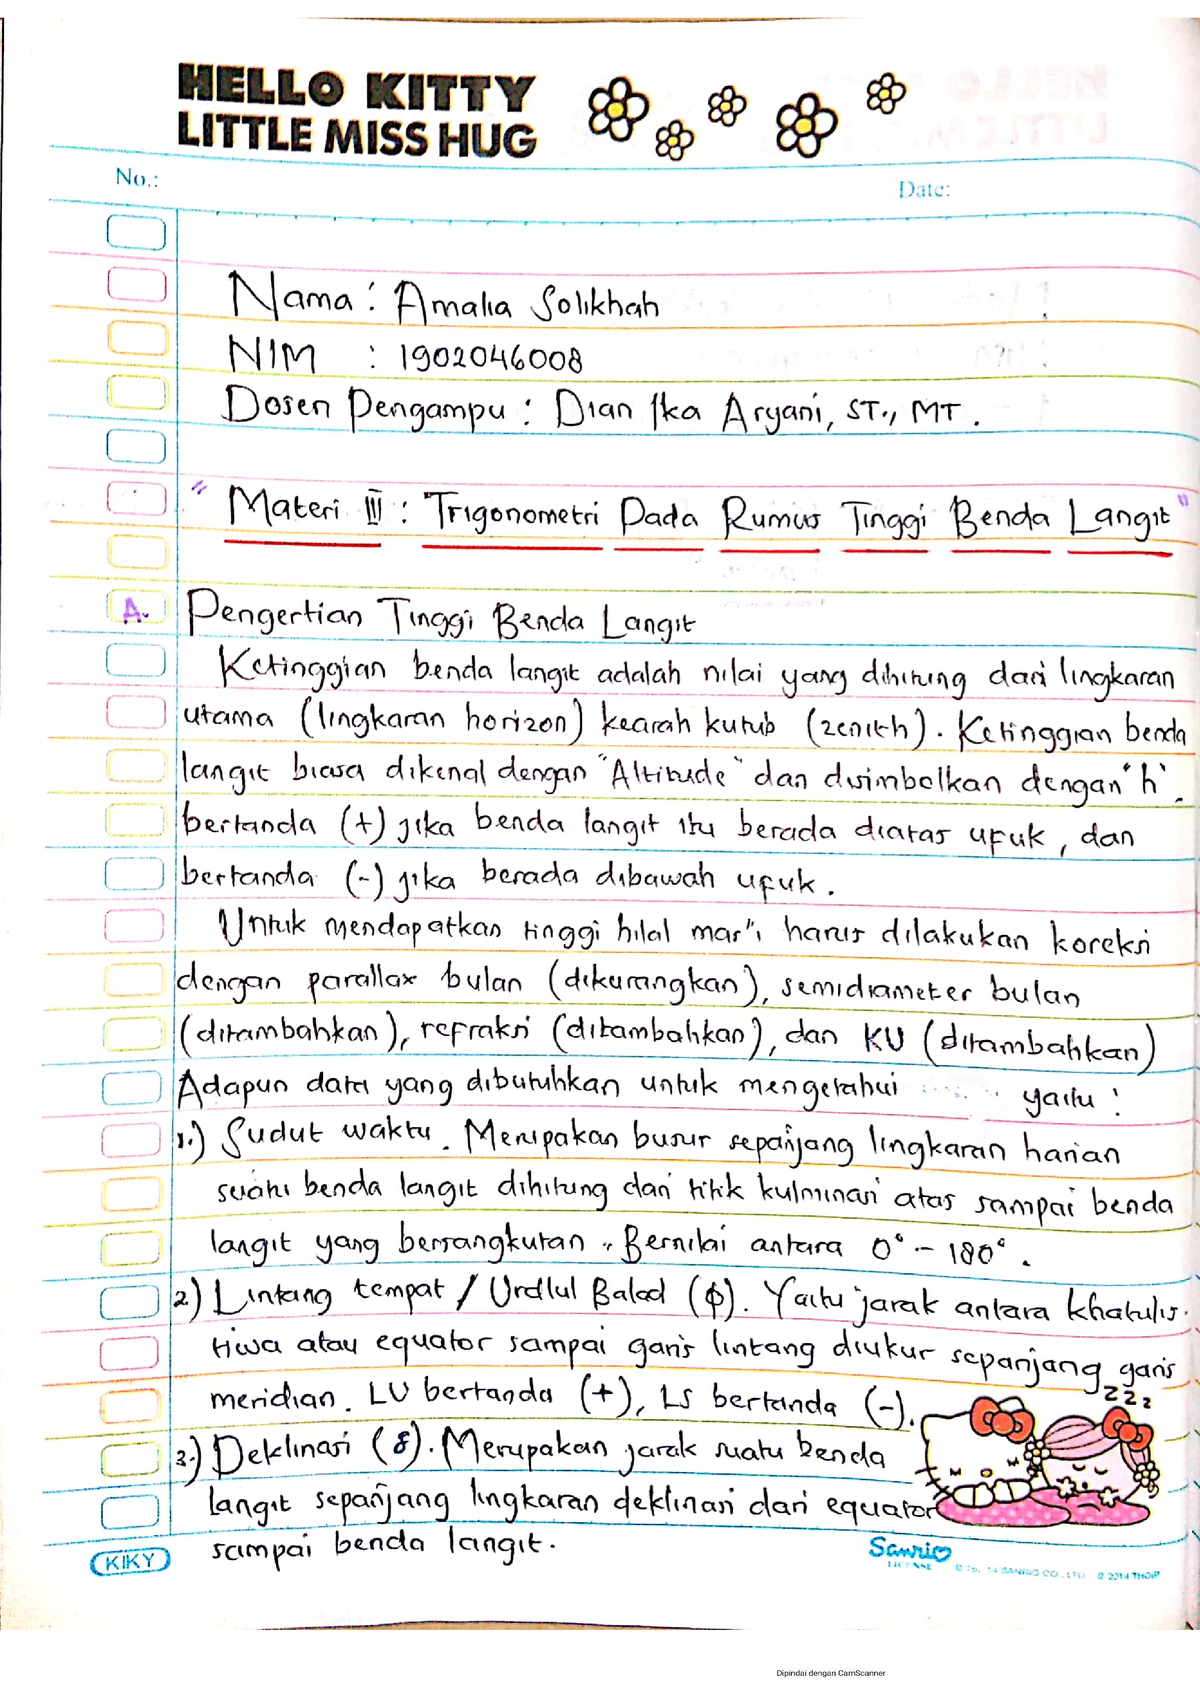 HELLO KITTY
LITTLE MISS HUG
No.:
Date:
Nama : Amalia Solikhah
NIM : 1902046008
Dosen Pengampu : Dian Ika Aryani, ST., MT.
" Materi III : Trigonometri Pada Rumus Tinggi Benda Langit "
A. Pengertian Tinggi Benda Langit
Ketinggian benda langit adalah nilai yang dihitung dari lingkaran
utama (lingkaran horizon) kearah kutub (zenith). Ketinggian benda
langit biasa dikenal dengan "Altitude" dan disimbolkan dengan 'h'.
bertanda (+) jika benda langit itu berada diatas ufuk, dan
bertanda (-) jika berada dibawah ufuk.
Untuk mendapatkan tinggi hilal mar'i harus dilakukan koreksi
dengan parallax bulan (dikurangkan), semidiameter bulan
(ditambahkan), refraksi (ditambahkan), dan KU (ditambahkan)
Adapun data yang dibutuhkan untuk mengetahui yaitu :
1.) Sudut waktu. Merupakan busur sepanjang lingkaran harian
suatu benda langit dihitung dari titik kulminasi atas sampai benda
langit yang bersangkutan. Bernilai antara 0° - 180°.
2.) Lintang tempat / Urdlul Balad (φ). Yaitu jarak antara khatulis-
tiwa atau equator sampai garis lintang diukur sepanjang garis
meridian. LU bertanda (+), LS bertanda (-).
zzz
3.) Deklinasi (δ). Merupakan jarak suatu benda
langit sepanjang lingkaran deklinasi dari equator
sampai benda langit.
KIKY
Sanrio
LICENSE
© 76, 14 SANRIO CO., LTD © 2014 THOIP
Dipindai dengan CamScanner